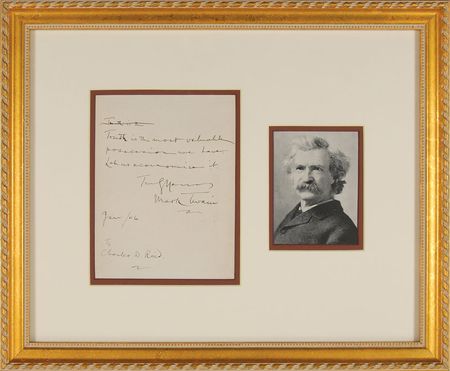 Truth is the most valuable
possession we have
Let us economise it
Truly Yours
Mark Twain
Jan /06
To
Charles D. Reid